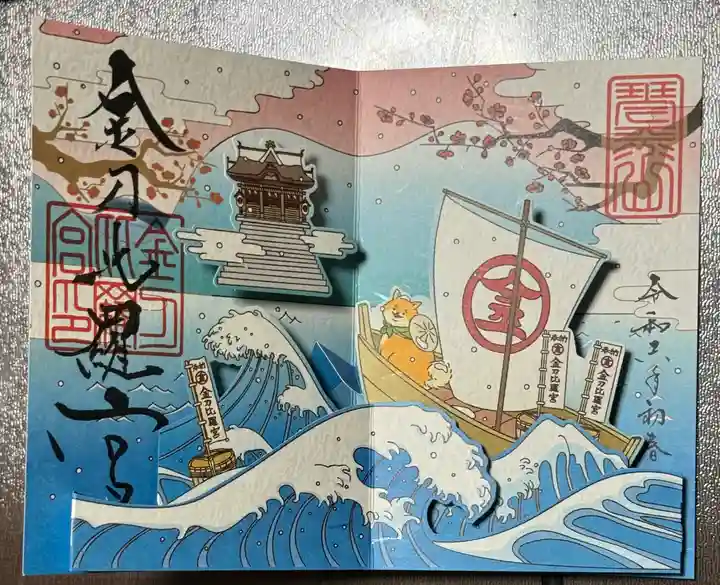 金刀比羅宮
金刀比羅宮印
琴平山
令和六年初春
金
奉納
金
金刀比羅宮
奉納
金
金刀比羅宮
奉納
金
金刀比羅宮